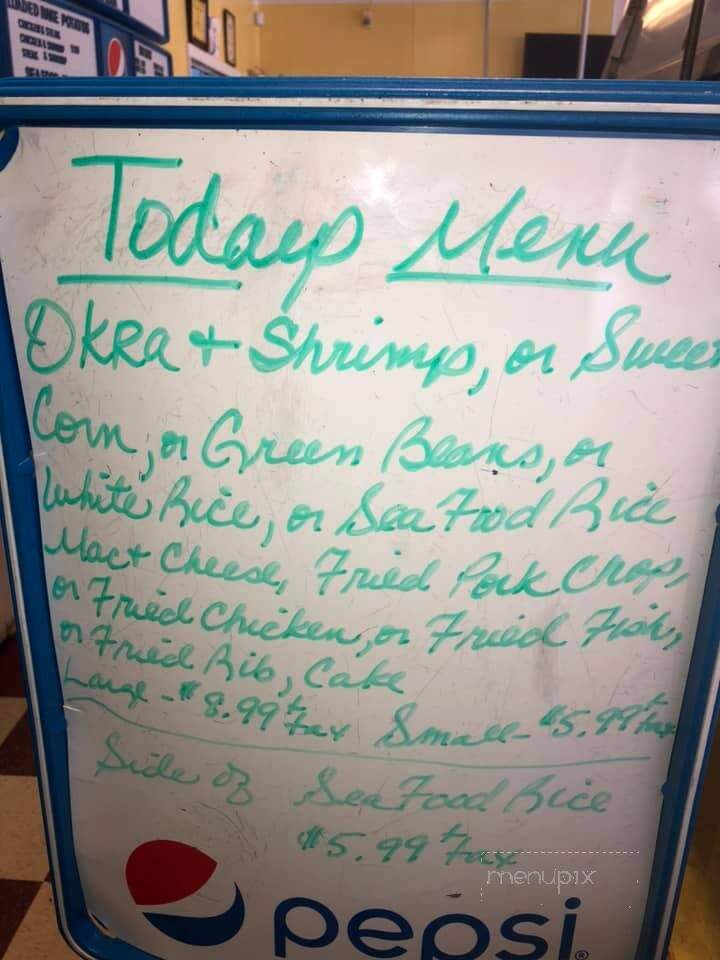 LOADED BAKE POTATOS
CHICKEN & STEAK
CHICKEN & SHRIMP
STEAK & SHRIMP
SEA FOOD
Todays Menu
OKRa + Shrimp, or Sweet
Corn, or Green Beans, or
White Rice, or Sea Food Rice
Mac + Cheese, Fried Pork Chop,
or Fried Chicken, or Fried Fish,
or Fried Rib, Cake
Large - $8.99 + tax Small - $5.99 + tax
Side of Sea Food Rice
$5.99 + tax
menupix
pepsi